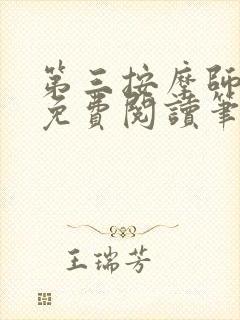 第三按摩師
免費閱讀筆
王瑞芳